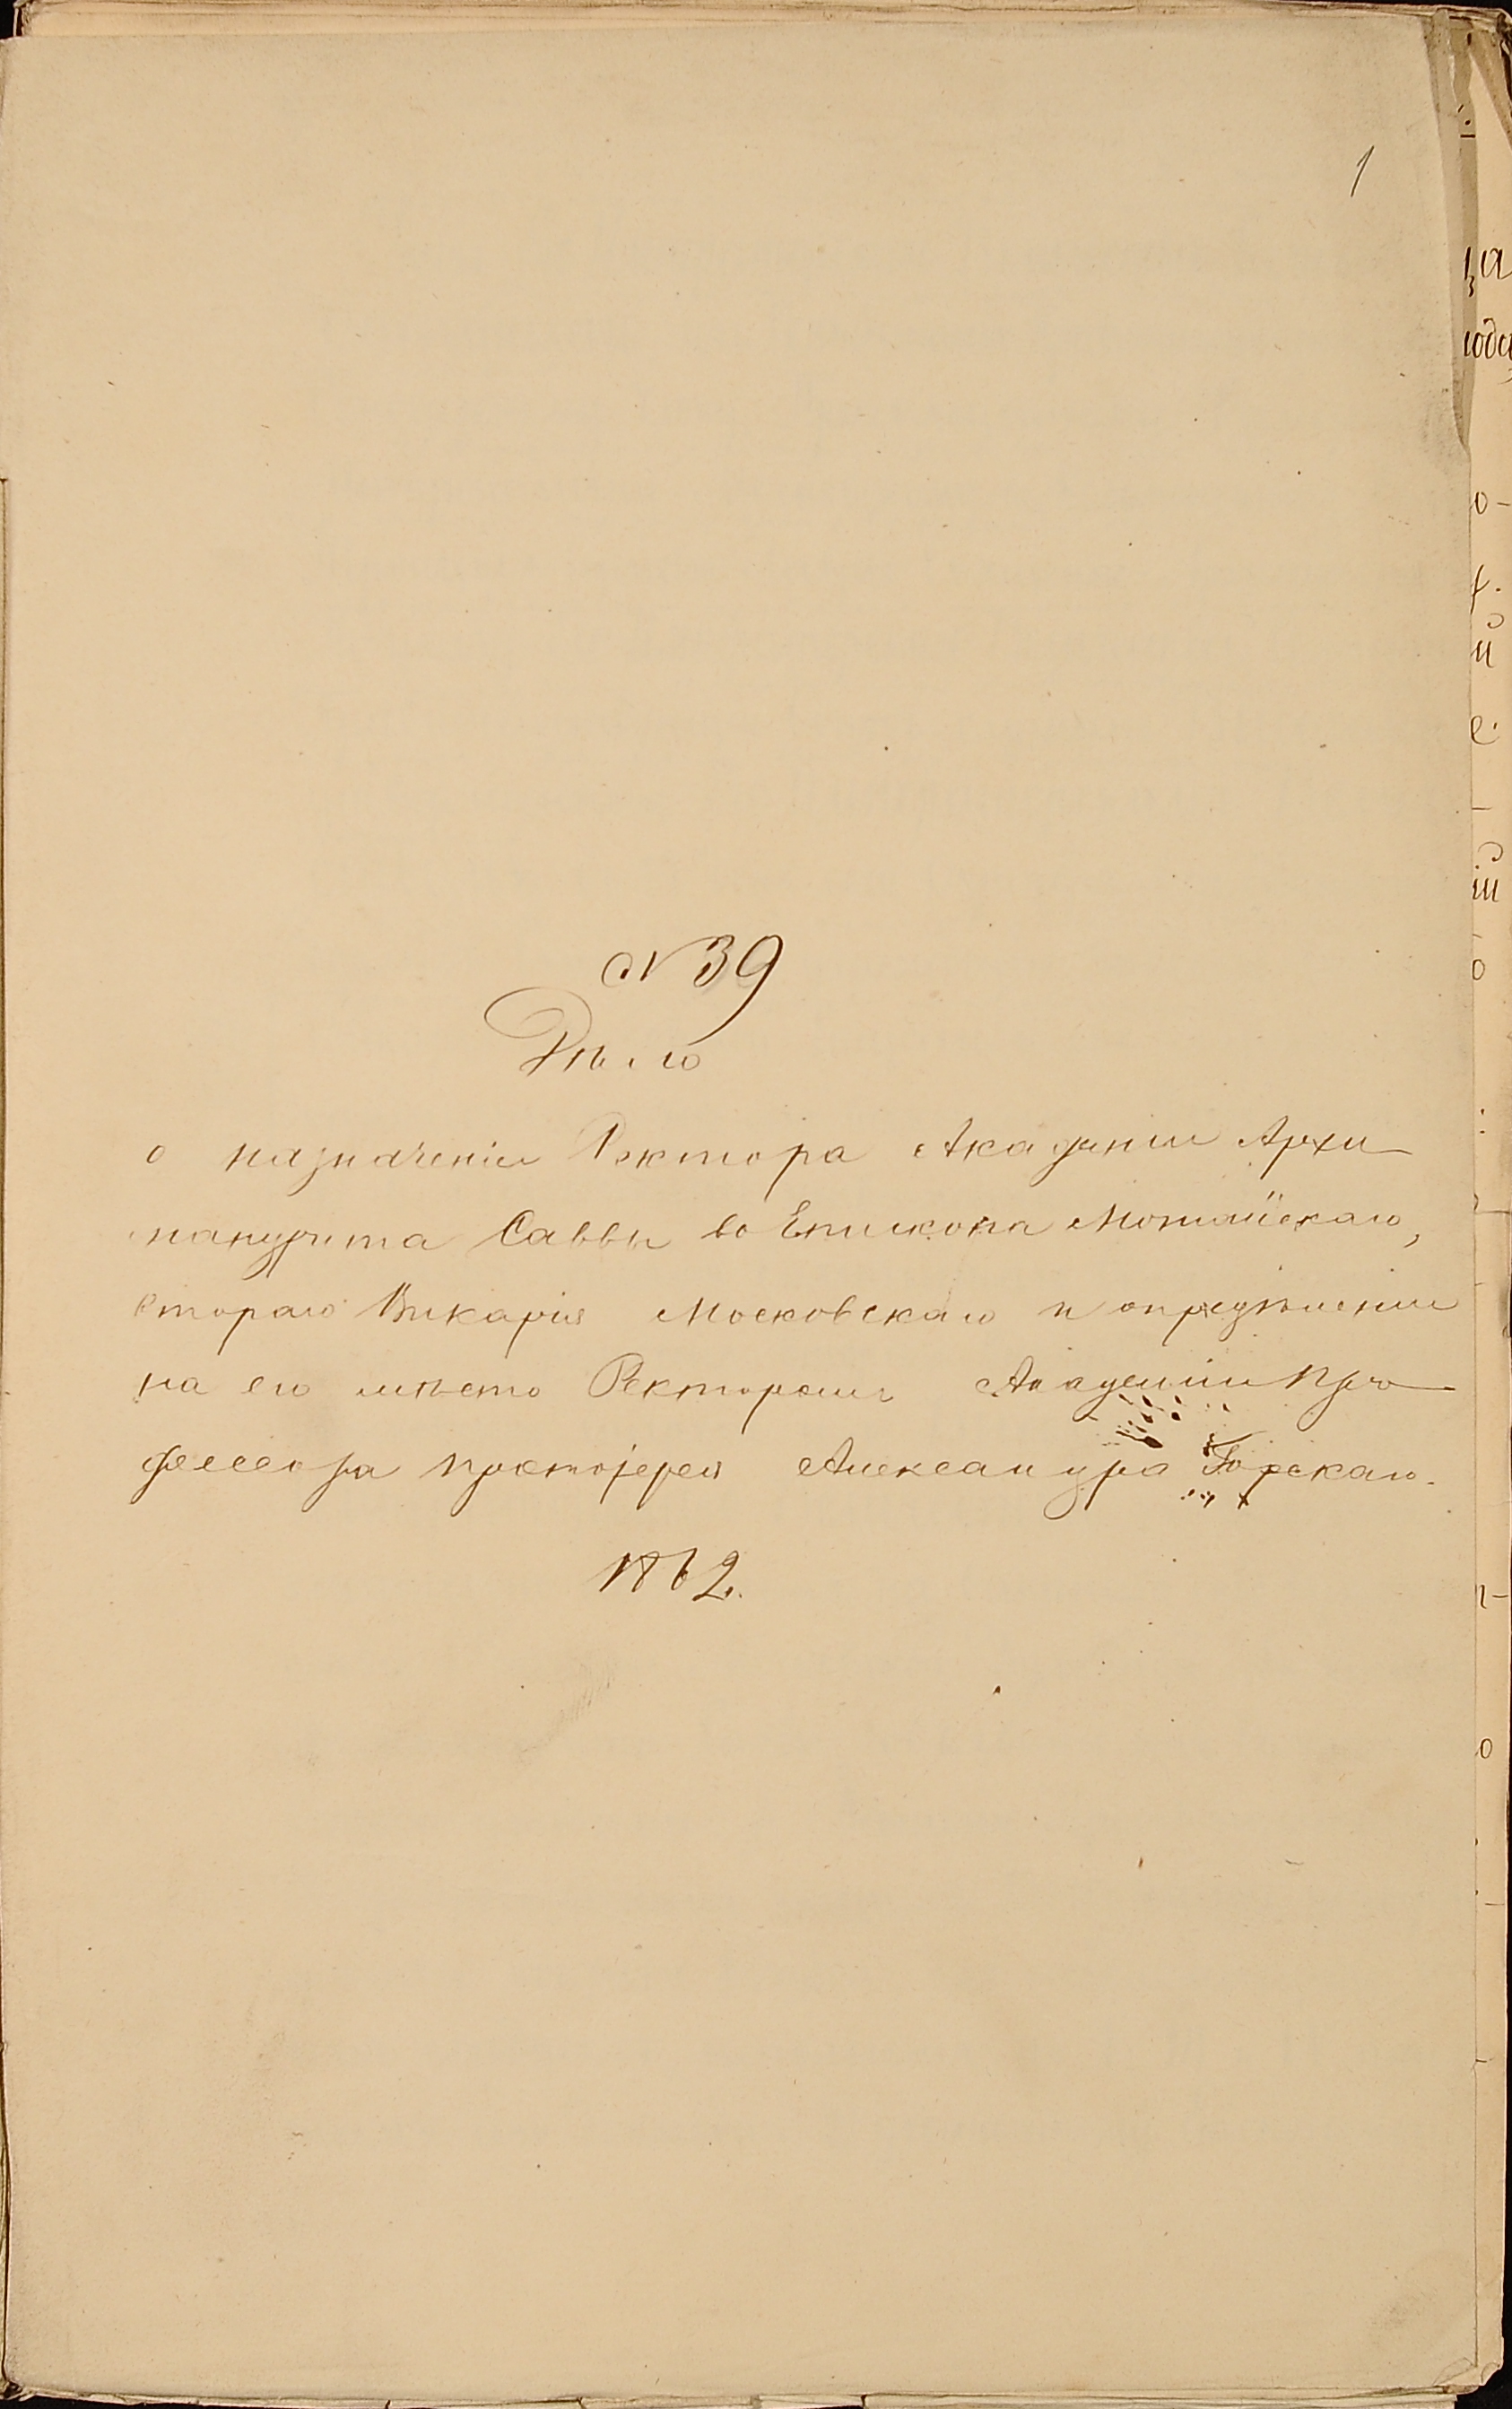 1
№ 39
Дѣло
о назначеніи Ректора Академіи Архи
мандрита Саввы во Епископа Можайскаго,
втораго Викарія Московскаго и опредѣленіи
на его мѣсто Ректоромъ Академіи Про
фессора протоіерея Александра Горскаго.
1862.